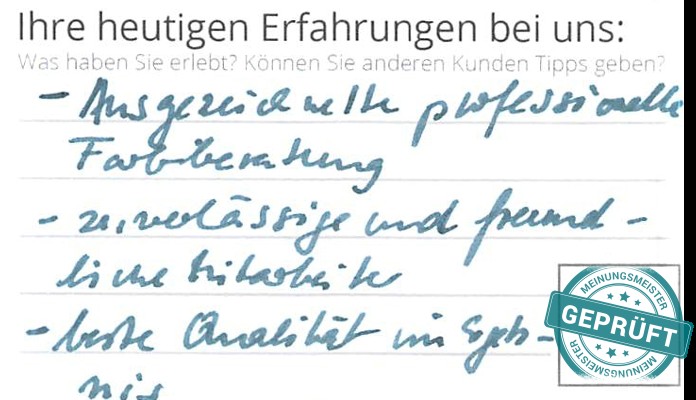 Ihre heutigen Erfahrungen bei uns:
Was haben Sie erlebt? Können Sie anderen Kunden Tipps geben?
- Ausgezeichnete professionelle
Farbberatung
- zuverlässige und freund -
liche Mitarbeiter
- beste Qualität im Ergeb-
nis
MEINUNGSMEISTER
GEPRÜFT
MEINUNGSMEISTER